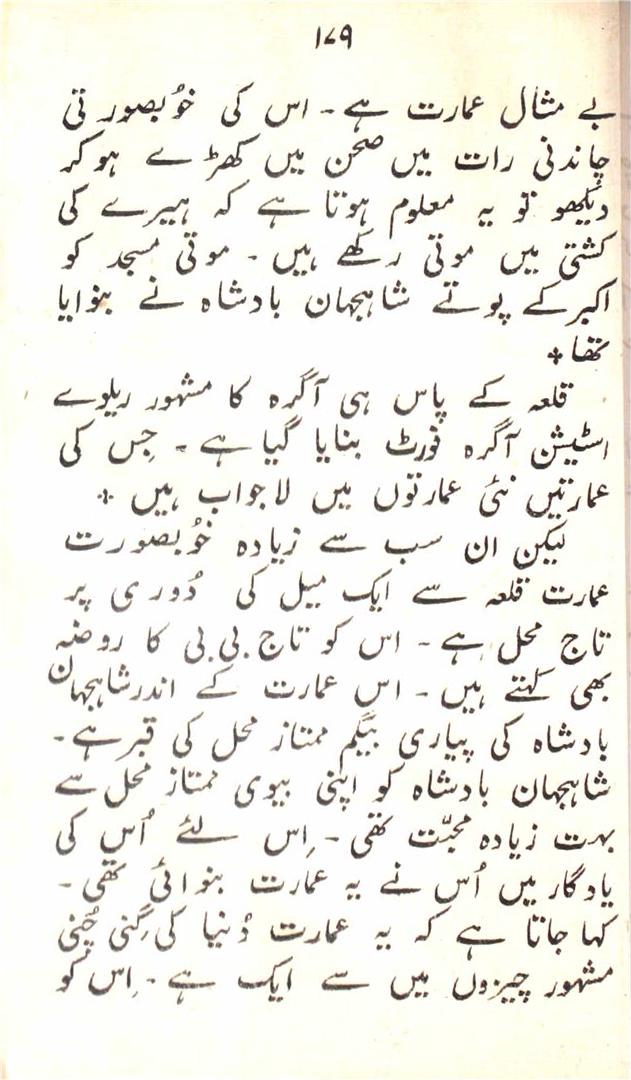 ۱۷۹
بے مثال عمارت ہے ۔ اس کی خوُبصورتی
چاندنی رات میں صحن میں کھڑے ہو کر
دیکھو تو یہ معلوم ہوتا ہے کہ ہیرے کی
کشتی میں موتی رکھے ہیں ۔ موتی مسجد کو
اکبر کے پوتے شاہجہان بادشاہ نے بنوایا
تھا +
قلعہ کے پاس ہی آگرہ کا مشہور ریلوے
اسٹیشن آگرہ فورٹ بنایا گیا ہے ۔ جِس کی
عمارتیں نئی عمارتوں میں لاجواب ہیں +
لیکن ان سب سے زیادہ خوُبصورت
عمارت قلعہ سے ایک میل کی دُوری پر
تاج محل ہے ۔ اس کو تاج بی بی کا روضہ
بھی کہتے ہیں ۔ اس عمارت کے اندر شاہجہان
بادشاہ کی پیاری بیگم ممتاز محل کی قبر ہے ۔
شاہجہان بادشاہ کو اپنی بیوی ممتاز محل سے
بہت زیادہ محبّت تھی ۔ اِس لئے اُس کی
یادگار میں اُس نے یہ عمارت بنوائی تھی ۔
کہا جاتا ہے کہ یہ عمارت دُنیا کی گِنی چُنی
مشہور چیزوں میں سے ایک ہے ۔ اِس کو